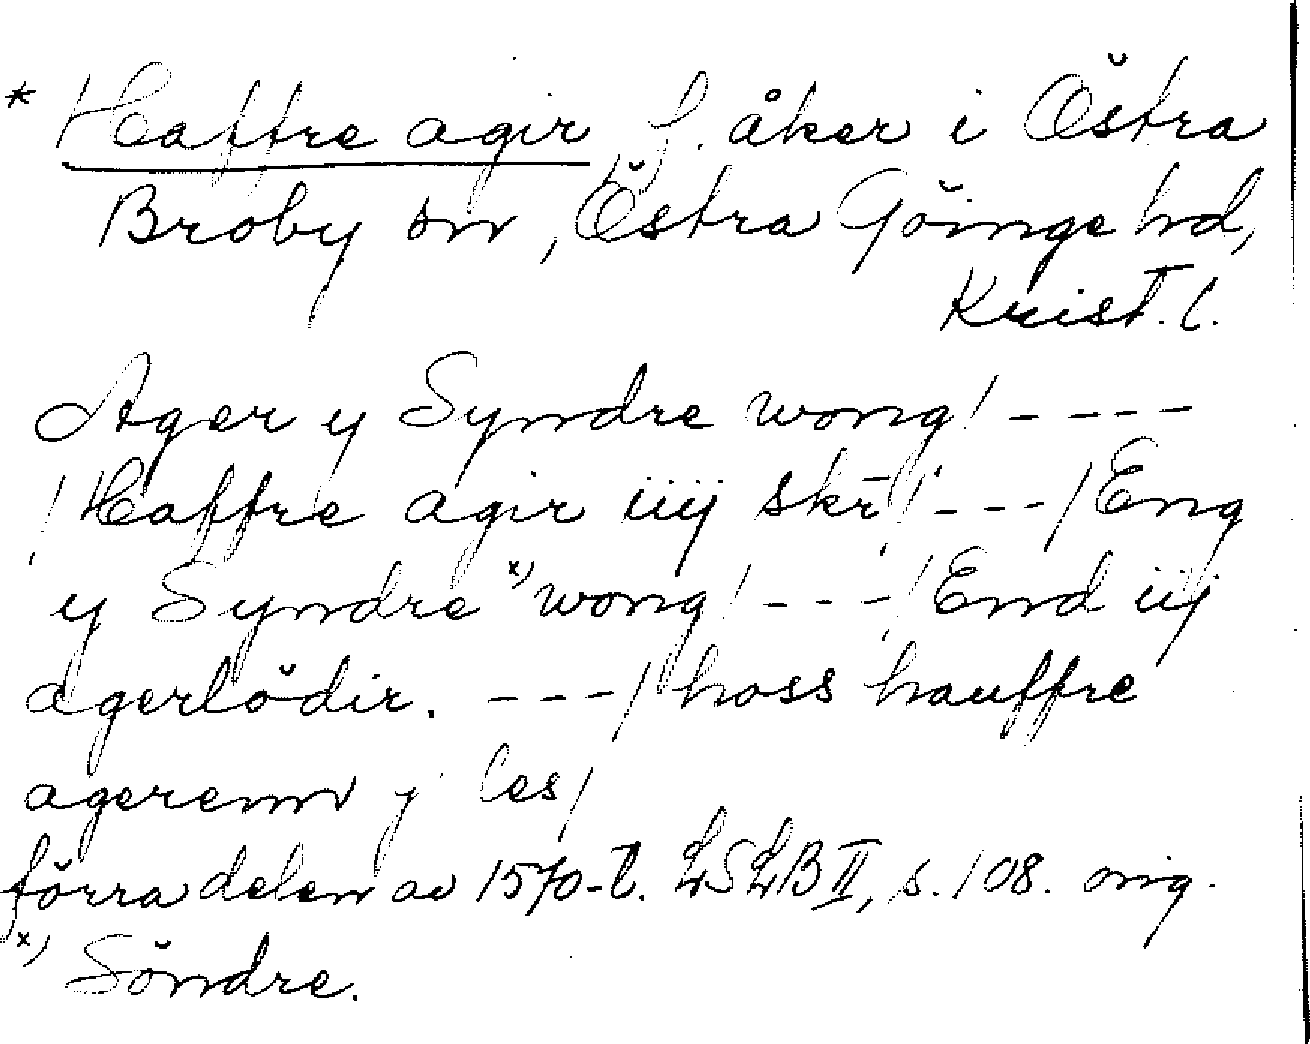 * Haffre agir f. åker i Östra
Broby sn, Östra Göinge hd,
Krist. l.
Ager y Syndre wong/ - - - -
/Haffre agir iiij skr̄/ - - - /Eng
y Syndre x) wong/ - - - /End iij
agerlödir. - - - / hoss hauffre
agerenn y les/
förra delen av 1570-t. LSLB II, s. 108. orig.
x) Söndre.